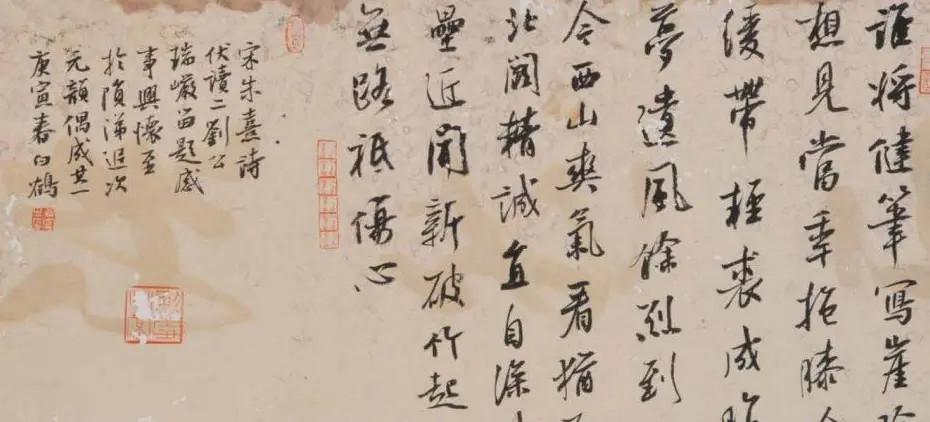 誰將健筆寫崖
想見當年抱膝
緩帶輕裘成
夢遺風餘烈到
今西山爽氣看猶
北闕精誠直自深
壘近聞新破竹起
無路祗傷心
宋朱熹詩
伏讀二劉公
瑞巖留題感
事興懷至
於隕涕追次
元韻偶成其一
庚寅春白鶴